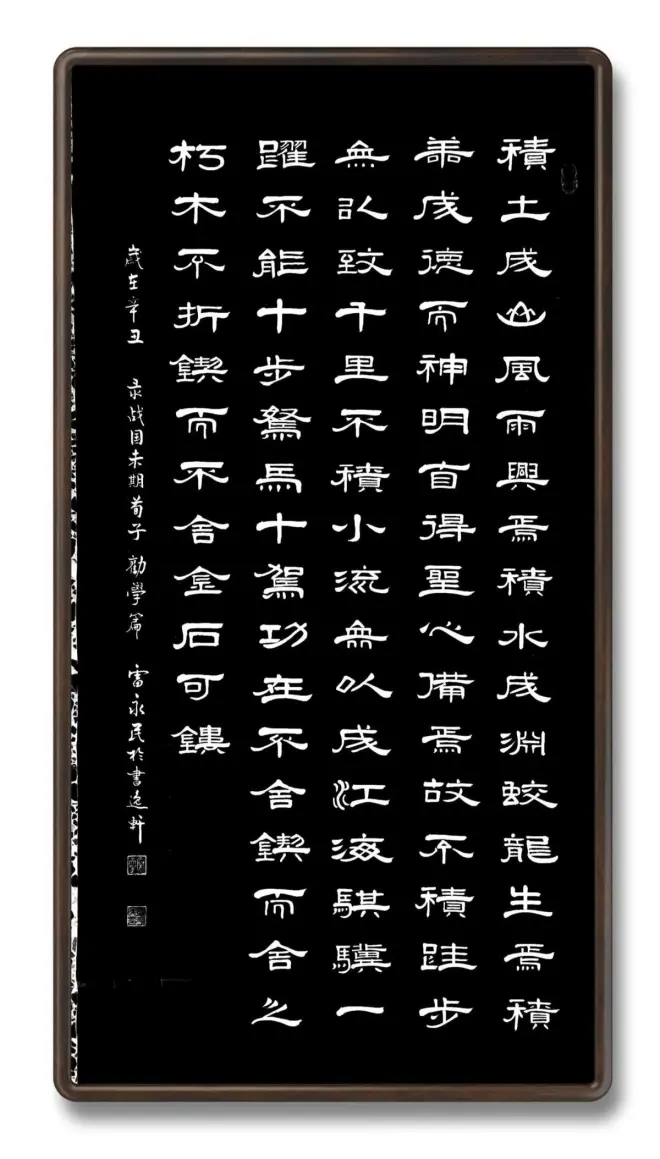 積土成山風雨興焉積水成淵蛟龍生焉積
善成德而神明自得聖心備焉故不積跬步
無以致千里不積小流無以成江海騏驥一
躍不能十步駑馬十駕功在不舍鍥而舍之
朽木不折鍥而不舍金石可鏤
歲在辛丑 录战国末期荀子 勸學篇 雷永民於書逸軒